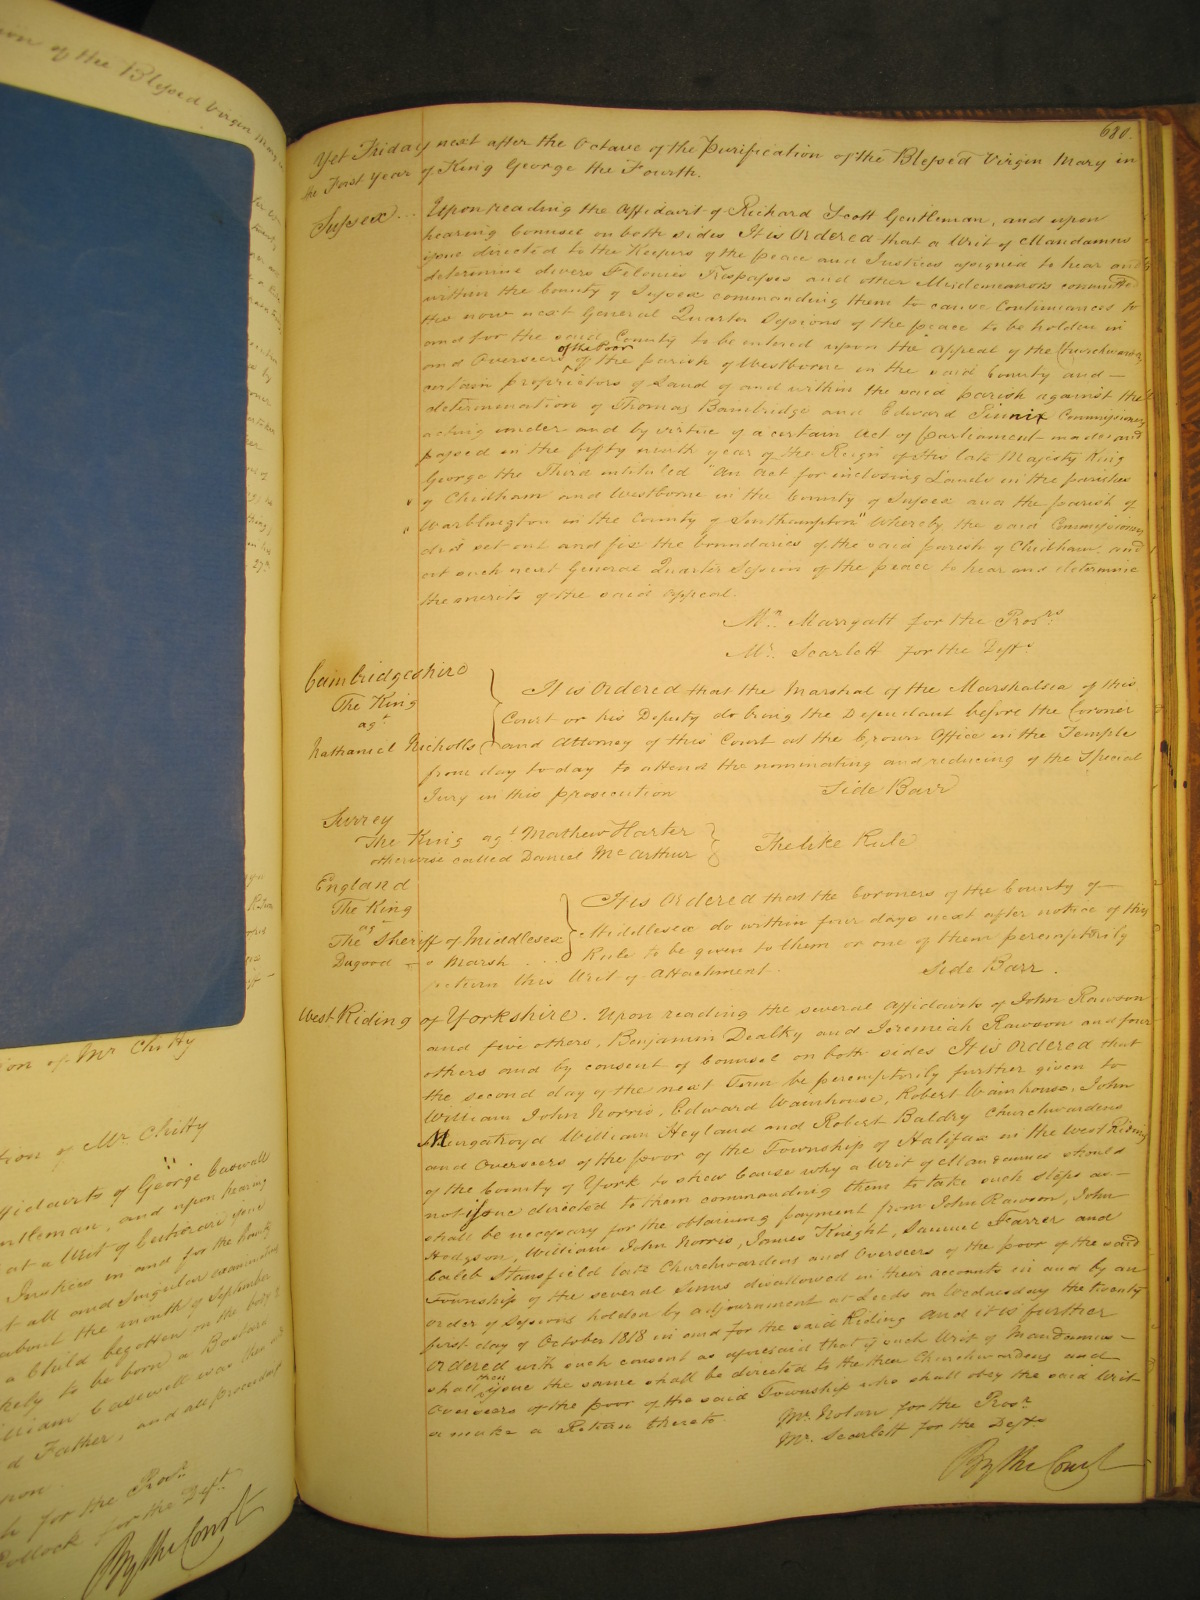 ion of the Blessed Virgin Mary
680.
Yet Friday next after the Octave of the Purification of the Blessed Virgin Mary in
the First Year of King George the Fourth.
Sussex... Upon reading the Affidavit of Richard Scott Gentleman, and upon
hearing Counsel on both sides It is Ordered that a Writ of Mandamus
issue directed to the Keepers of the peace and Justices assigned to hear and
determine divers Felonies Trespasses and other Misdemeanors committed
within the County of Sussex commanding them to cause Continuances to
the now next General Quarter Sessions of the peace to be holden in
and for the said County to be entered upon the appeal of the Churchwardens
and Overseers of the Poor of the parish of Westborne in the said County and —
certain proprietors of Land of and within the said parish against the
determination of Thomas Bainbridge and Edward Sinnix Commissioners
acting under and by virtue of a certain Act of Parliament made and
passed in the fifty ninth year of the Reign of His late Majesty King
George the Third intituled "An Act for inclosing Lands in the parishes
of Chidham and Westborne in the County of Sussex and the parish of
Warblington in the County of Southampton" Whereby the said Commissioners
did set out and fix the boundaries of the said parish of Chidham, and
at such next General Quarter Session of the peace to hear and determine
the merits of the said appeal.
Mr. Marryatt for the Prosrs.
Mr. Scarlett for the Deft.
Cambridgeshire
The King
agt
Nathaniel Nicholls
It is Ordered that the Marshal of the Marshalsea of this
Court or his Deputy do bring the Defendant before the Coroner
and Attorney of this Court at the Crown Office in the Temple
from day to day to attend the nominating and reducing of the Special
Jury in this prosecution
Side Barr
Surrey
The King agt Mathew Harter
otherwise called Daniel McArthur
The like Rule
England
The King
agt
The Sheriff of Middlesex
Dagood — v Marsh ...
It is Ordered that the Coroners of the County of —
Middlesex do within four days next after notice of this
Rule to be given to them or one of them peremptorily
return this Writ of Attachment.
Side Barr.
West Riding of Yorkshire. Upon reading the several affidavits of John Rawson
and five others, Benjamin Dealky and Jeremiah Rawson and four
others and by consent of Counsel on both sides It is Ordered that
the second day of the next Term be peremptorily further given to
William John Norris, Edward Wainhouse, Robert Wainhouse, John
Murgatroyd William Heyland and Robert Baldry Churchwardens
and Overseers of the poor of the Township of Halifax in the West Riding
of the County of York to shew Cause why a Writ of Mandamus should
not issue directed to them commanding them to take such steps as —
shall be necessary for the obtaining payment from John Rawson, John
Hodgson, William John Norris, James Knight, Samuel Farrer and
Caleb Stansfield late Churchwardens and Overseers of the poor of the said
Township of the several Sums disallowed in their accounts in and by an
order of Sessions holden by adjournment at Leeds on Wednesday the twenty
first day of October 1818 in and for the said Riding And it is further
Ordered with such consent as aforesaid that if such Writ of Mandamus —
shall then issue the same shall be directed to the then Churchwardens and
Overseers of the poor of the said Township who shall obey the said Writ
or make a Return thereto
Mr. Nolan for the Prosr.
Mr. Scarlett for the Defts.
By the Court
ion of Mr Chitty
tion of Mr. Chitty
ffidavits of George Caswall
ntleman, and upon hearing
at a Writ of Certiorari issue
Justices in and for the
t all and singular
about the month of September
a Child begotten on the body
kely to be born a Bastard
lliam Casewell was the
d Father, and all
for the Prosr.
Pollock for the Deft.
By the Court